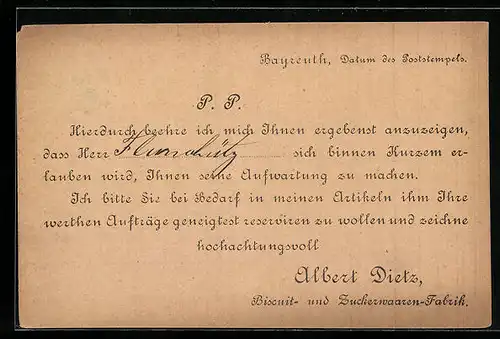 Bayreuth, Datum des Poststempels.
P. P.
Hierdurch beehre ich mich Ihnen ergebenst anzuzeigen,
dass Herr sich binnen Kurzem er-
lauben wird, Ihnen seine Aufwartung zu machen.
Ich bitte Sie bei Bedarf in meinen Artikeln ihm Ihre
werthen Aufträge geneigtest reserviren zu wollen und zeichne
hochachtungsvoll
Albert Dietz,
Biscuit- und Zuckerwaaren-Fabrik.